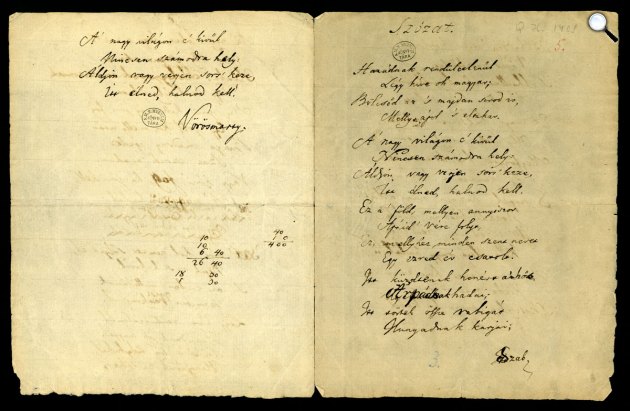 A' nagy világon é kívül
Nincsen számodra hely;
Áldjon vagy verjen sors' keze,
Itt élned, halnod kell!
Vörösmarty.
10
10
6 40
26 40
18 30
1 30
40
10
400
Szózat.
5.
Hazádnak rendűletlenűl
Légy híve oh magyar;
Bölcsőd az 's majdan sírod is,
Melly ápol 's eltakar.
A' nagy világon é kívül
Nincsen számodra hely:
Áldjon, vagy verjen sors' keze,
Itt élned, halnod kell.
Ez a' föld, mellyen annyiszor
Apáid' vére folyt,
Ez, mellyhez minden szent nevet
Egy ezred év csatolt.
Itt küzdtenek honért a' hős
Árpádnak hadai;
Itt törtek össze rabigát
Hunyadnak karjai;
Szab
3.